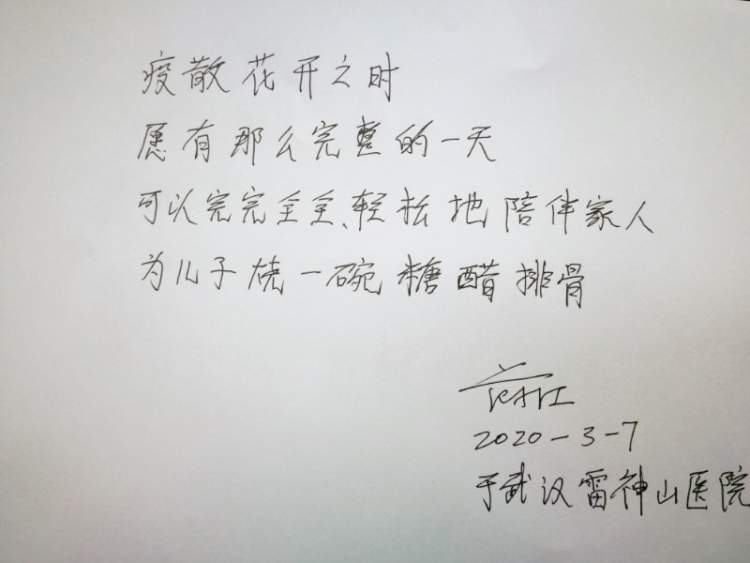 疫散花开之时
愿有那么完整的一天
可以完完全全、轻松地陪伴家人
为儿子烧一碗糖醋排骨
2020-3-7
于武汉雷神山医院